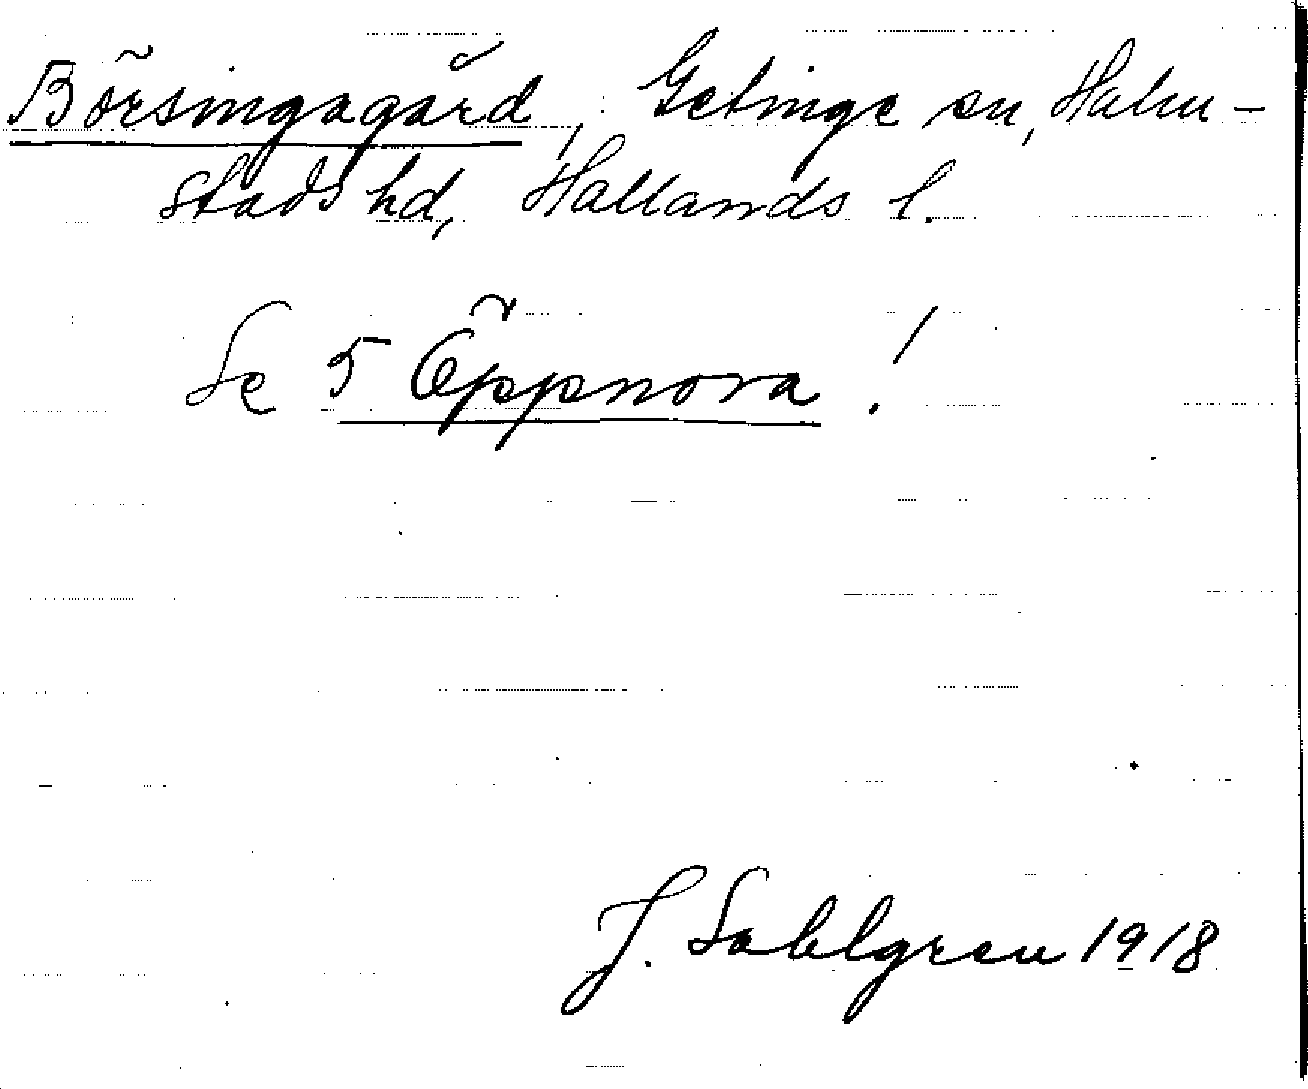 Börsingagård, Getinge sn, Halm-
stads hd, Hallands l.
Se 5 Öppnora!
J. Sahlgren 1918